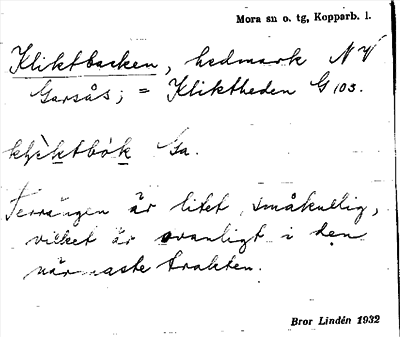 Mora sn o. tg, Kopparb. l.
Kliktbacken, hedmark N V
Garsås; = Kliktheden G 103.
Ga.
Terrängen är litet småkullig,
vilket är ovanligt i den
närmaste trakten.
Bror Lindén 1932